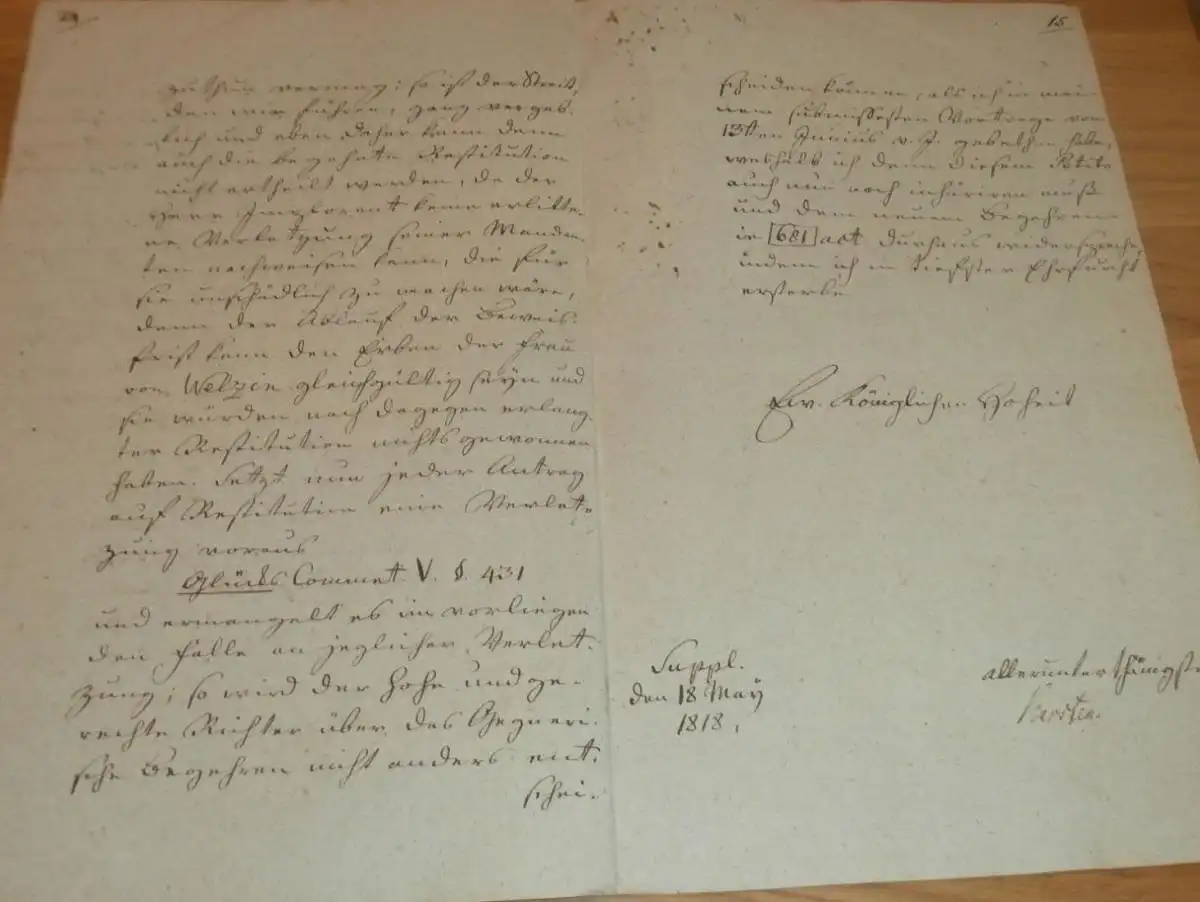 zu thun vermag; so ist der Streit,
den wir führen, ganz vergeb-
lich und eben daher kann denn
auch die begehrte Restitution
nicht ertheilt werden, da der
Herr Implorant keine erlitte-
ne Verletzung seiner Manden-
ten nachweisen kann, die für
sie unschädlich zu machen wäre,
denn der Ablauf der Beweis-
frist kann den Erben der Frau
von Welzien gleichgültig seyn und
sie würden nach dagegen erlang-
ter Restitution nichts gewonnen
haben. Setzt nun jeder Antrag
auf Restitution eine Verlet-
zung voraus
Glücks Comment. V. §. 431
und ermangelt es im vorliegen
den Falle an jeglicher Verlet-
zung; so wird der hohe und ge-
rechte Richter über das Gegneri-
sche Begehren nicht anders ent-
schei-
15
scheiden können, als ich in mei
nem submissesten Vortrage vom
13ten Junius v. J. gebethen habe,
weshalb ich denn diesem Petito
auch nun noch inhäriren muß
und dem neuen Begehren
in [681] act durchaus widerspreche,
indem ich in tiefster Ehrfurcht
ersterbe
Ew. Königlichen Hoheit
Suppl.
den 18 May
1818.
allerunterthänigste
Karsten.